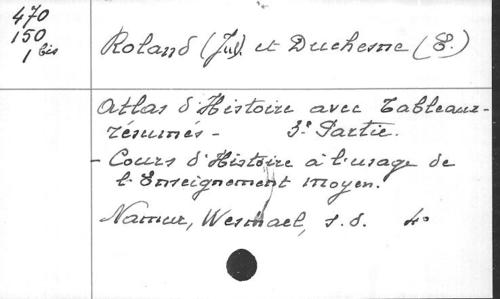 470
150
1 bis
Roland (Jul). et Duchesne (E.)
Atlas d'Histoire avec Tableaux-
résumés - 3e Partie.
- Cours d'Histoire à l'usage de
l'Enseignement moyen.
Namur, Wesmael, s.d. 4o